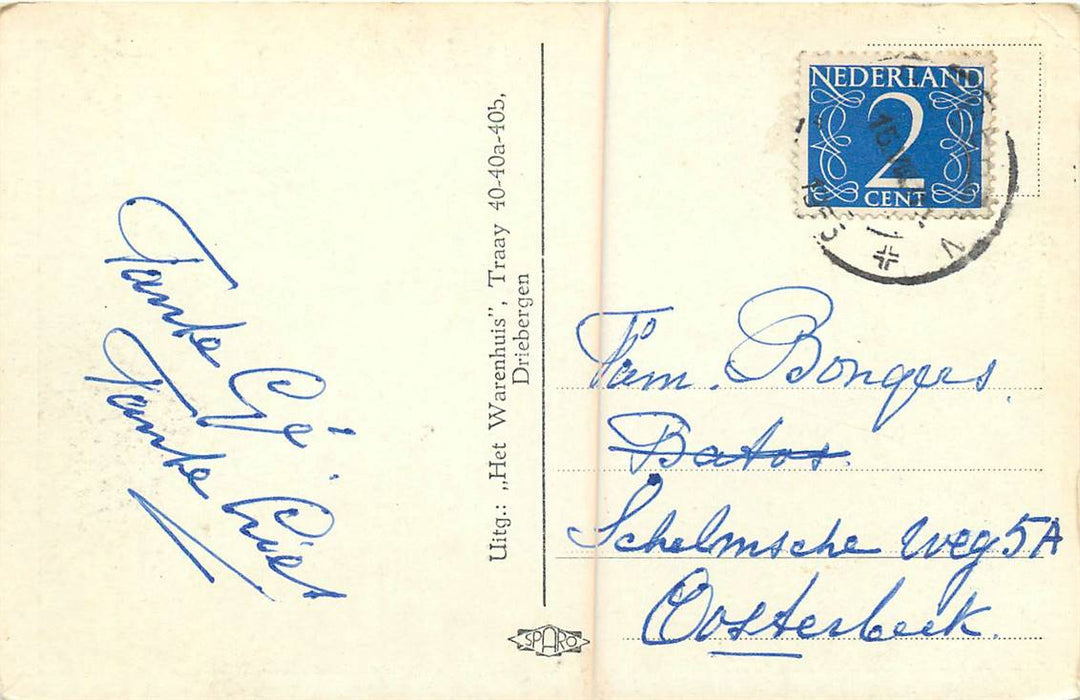 Tante Gé.
Tante Cies
Uitg.: „Het Warenhuis”, Traay 40-40a-40b,
Driebergen
SPARO
NEDERLAND
2
CENT
Fam. Bongers.
Batos.
Schelmsche weg 5A
Oosterbeek.